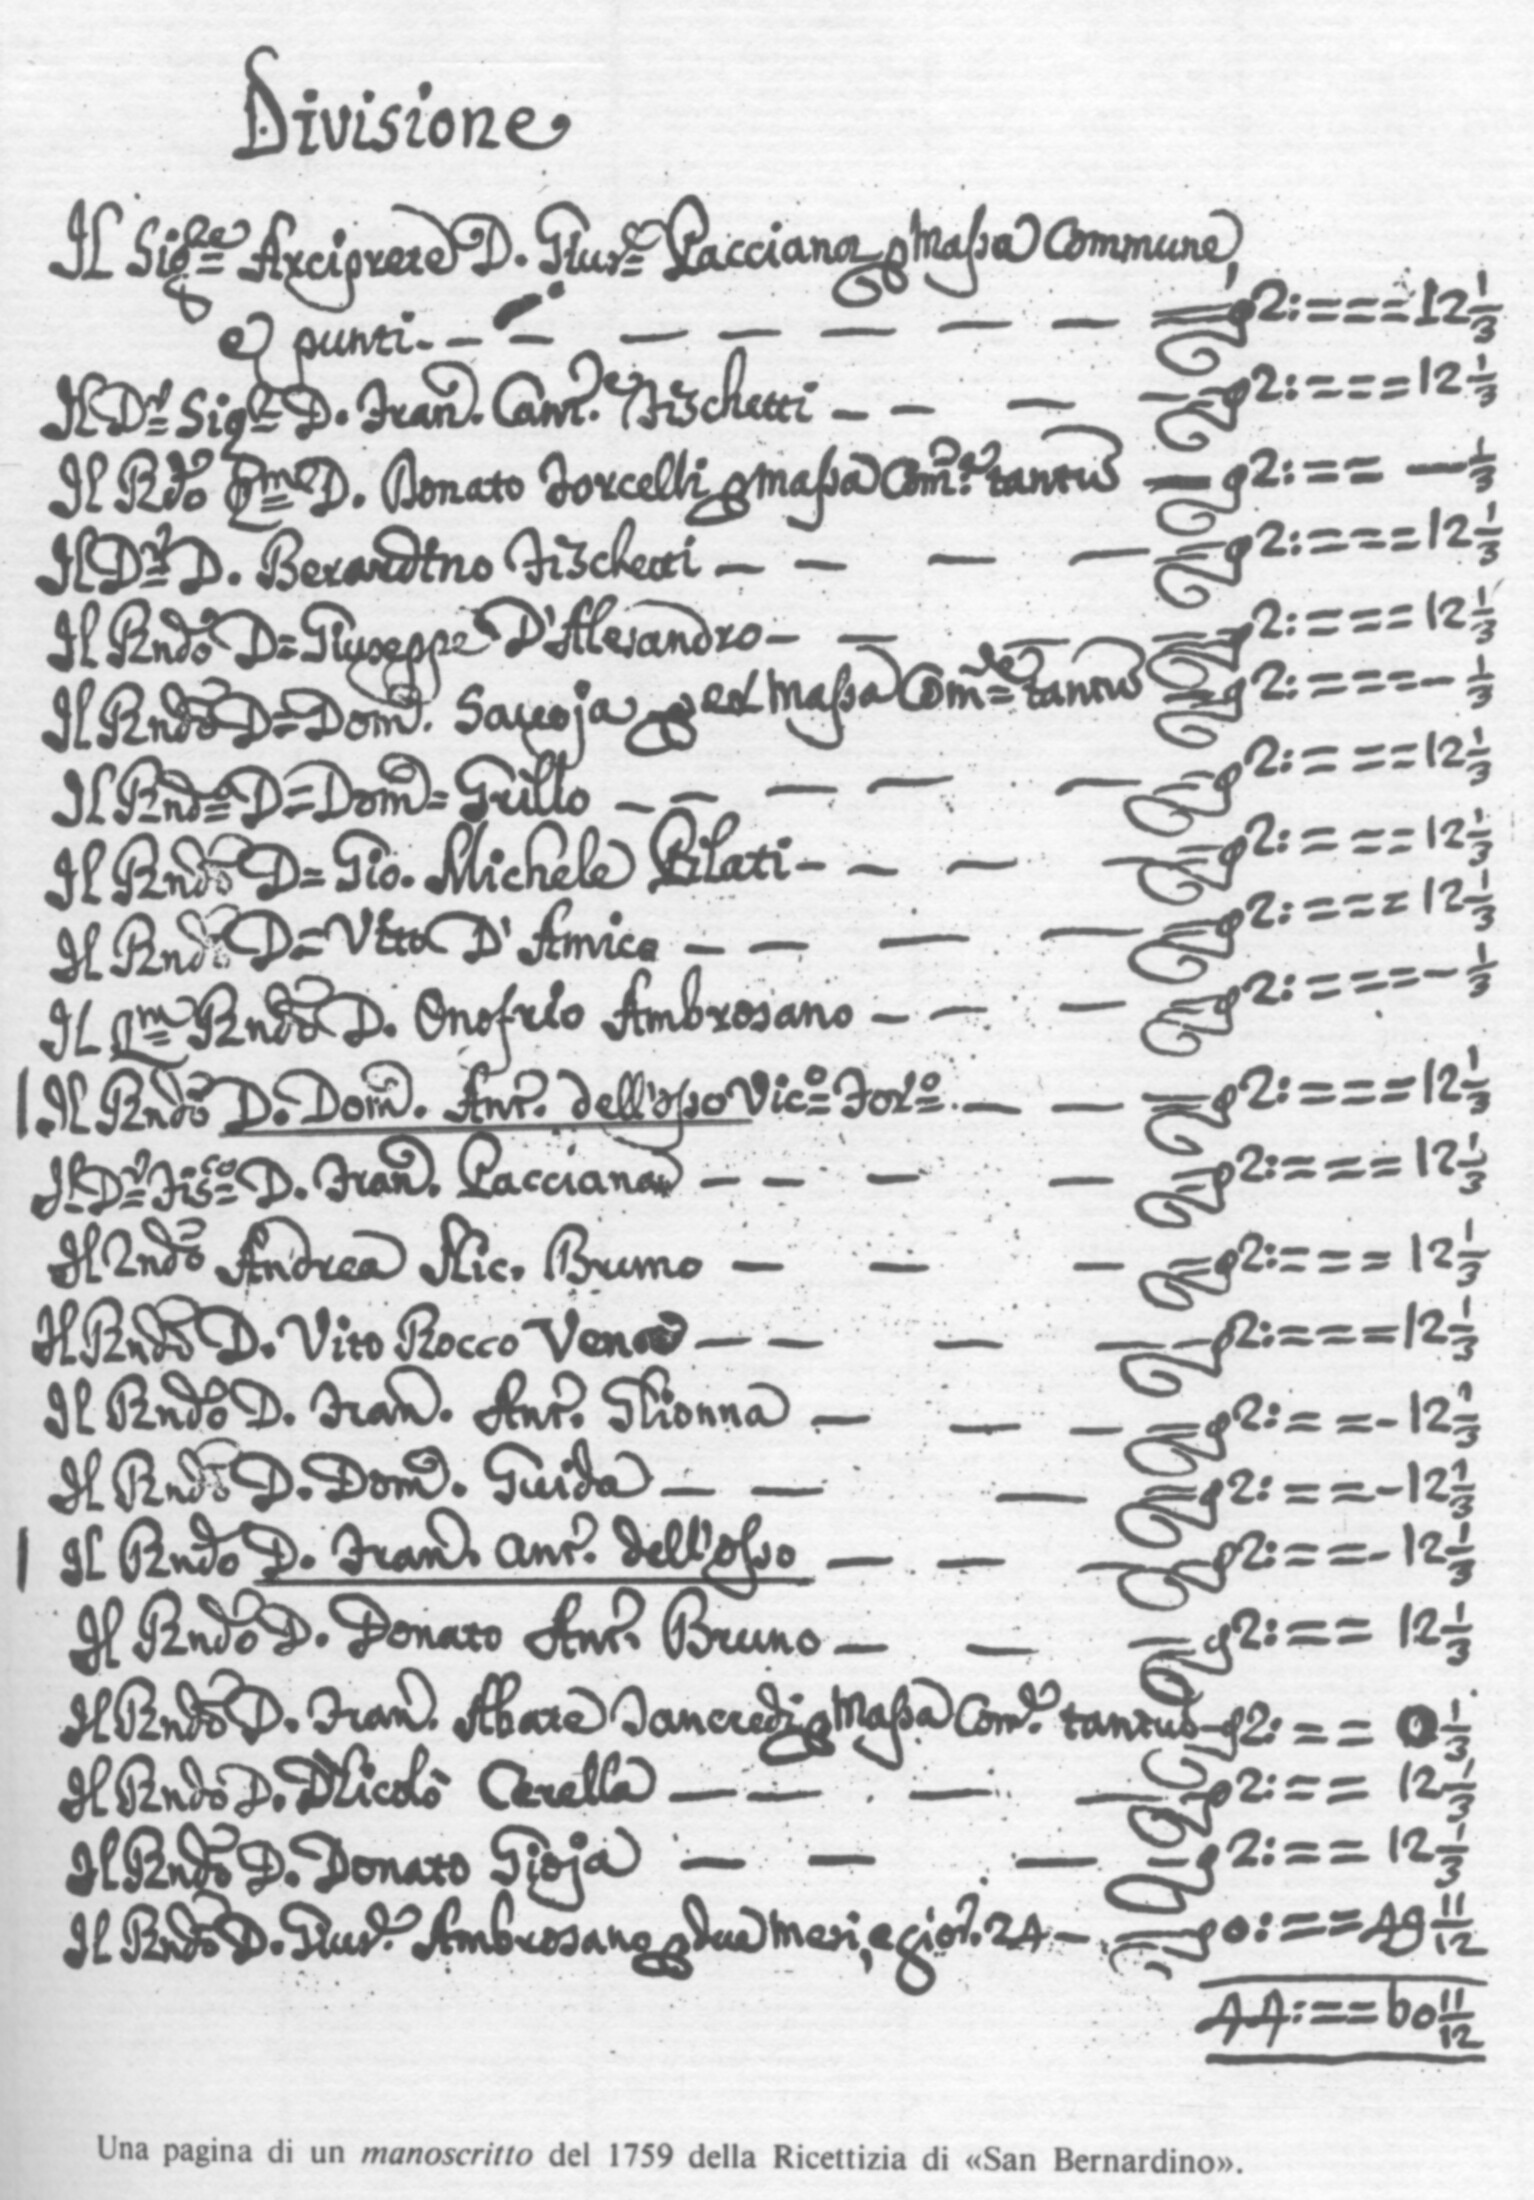 Divisione
Il Sig.re Arciprete D. Gius.e Pacciana p massa Commune,
e punti - - - - - - - - - 2: = = = 12 1/3
Il D.r Sig.r D. Fran. Cant.e Fischetti - - - - 2: = = = 12 1/3
Il Rdo D. Donato Torcelli p massa Com.e tantu - 2: = = - 1/3
Il D.r D. Berardino Fischetti - - - - 2: = = = 12 1/3
Il Rndo D = Giuseppe D'Alesandro - - - - 2: = = = 12 1/3
Il Rndo D = Dom. Savoja p ex massa Com=e tantu 2: = = = - 1/3
Il Rndo D = Dom = Grillo - - - - - 2: = = = 12 1/3
Il Rndo D = Gio. Michele Pilati - - - - 2: = = = 12 1/3
Il Rndo D = Vito D'Amico - - - - 2: = = = 12 1/3
Il qm Rndo D. Onofrio Ambrosano - - - 2: = = = - 1/3
Il Rndo D. Dom. Ant. dell'osso Vic.o For.o - - - 2: = = = 12 1/3
Il D.r Fis.co D. Fran. Pacciana - - - - 2: = = = 12 1/3
Il Rndo Andrea Nic. Bruno - - - 2: = = = 12 1/3
Il Rndo D. Vito Rocco - - - - 2: = = = 12 1/3
Il Rndo D. Fran. Ant. Glionna - - - 2: = = - 12 1/3
Il Rndo D. Dom. Guida - - - 2: = = - 12 1/3
Il Rndo D. Fran. Ant. dell'osso - - - 2: = = - 12 1/3
Il Rndo D. Donato Ant. Bruno - - - 2: = = 12 1/3
Il Rndo D. Fran. Abate Tancredi p Massa Com.e tantus - 2: = = 0 1/3
Il Rndo D. Nicolò Cerella - - - - 2: = = 12 1/3
Il Rndo D. Donato Gioja - - - - 2: = = 12 1/3
Il Rndo D. Gius.e Ambrosano p due mesi, e gior. 24 - - 0: = = 49 11/12
44: = = 60 11/12
Una pagina di un manoscritto del 1759 della Ricettizia di «San Bernardino».